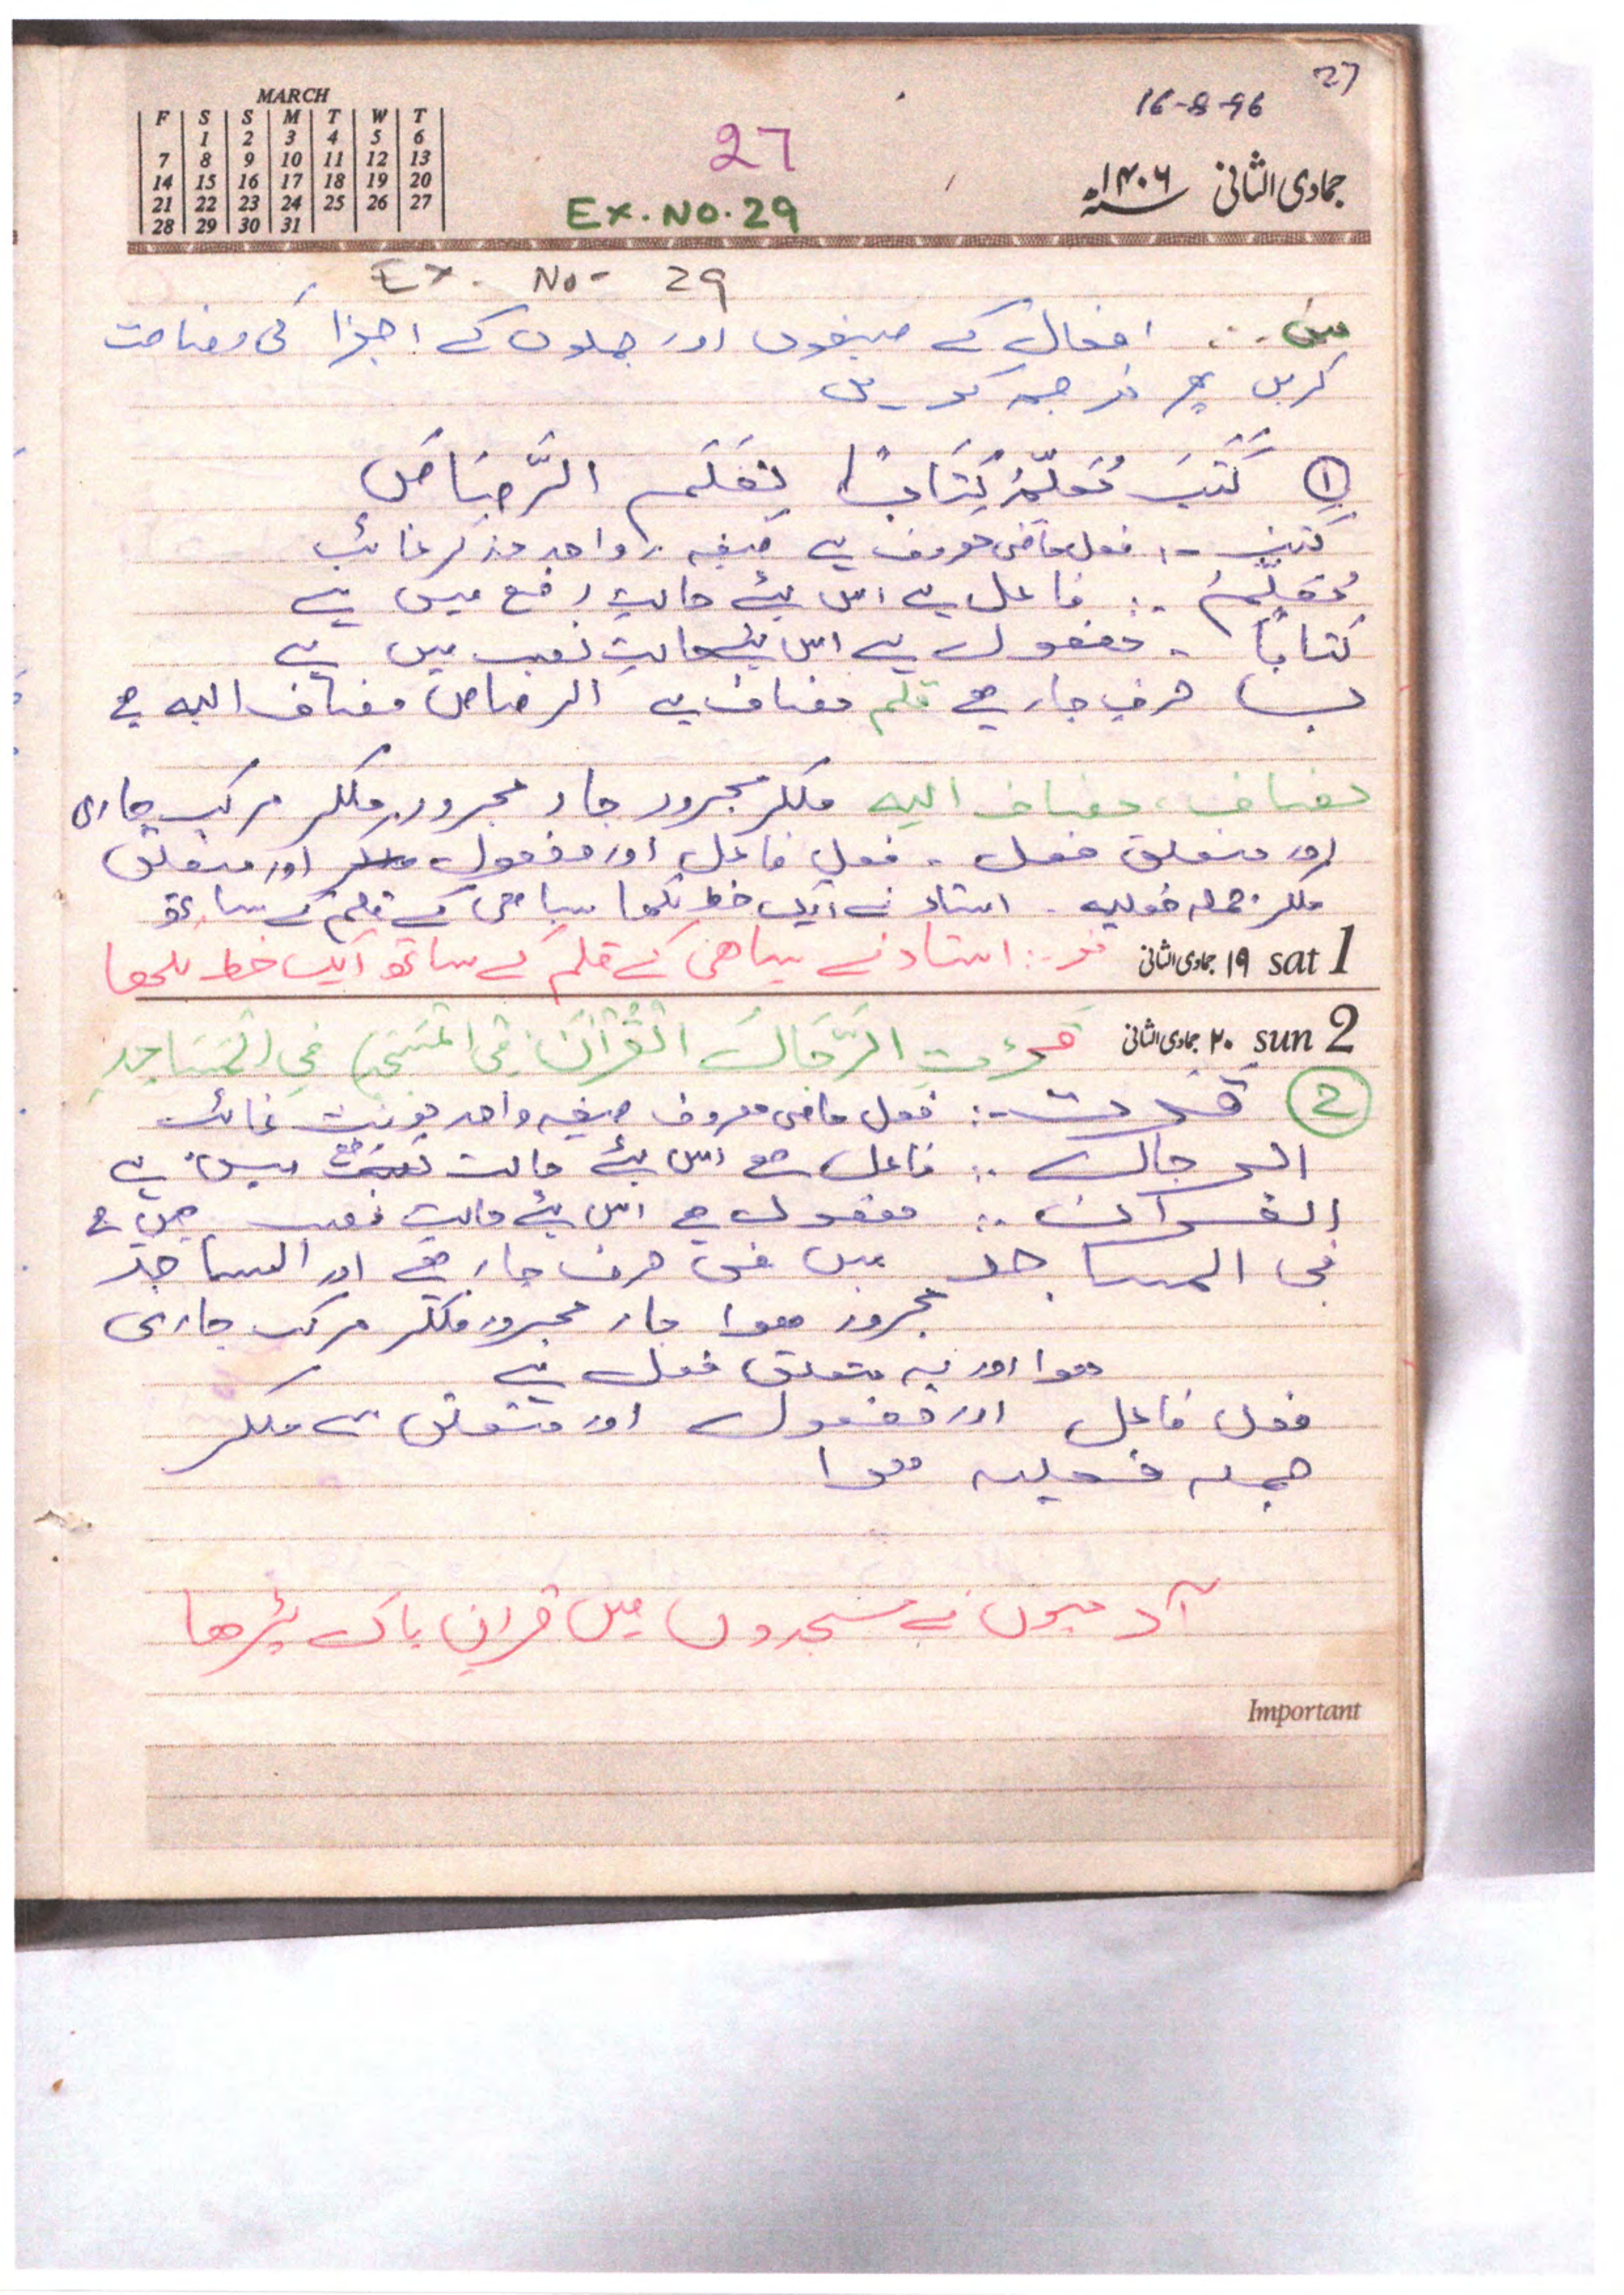 27
16-8-96
MARCH
F S S M T W T
1 2 3 4 5 6
7 8 9 10 11 12 13
14 15 16 17 18 19 20
21 22 23 24 25 26 27
28 29 30 31
27
جمادی الثانی ۱۴۰۶ھ
Ex. NO. 29
Ex. No- 29
افعال کے صیغوں اور جملوں کے اجزا کی وضاحت
کریں پھر ترجمہ کریں
① كَتَبَ مُعَلِّمٌ كِتَابًا بِقَلَمِ الرَّصَاصِ
کتب :- فعل ماضی معروف ہے صیغہ واحد مذکر غائب
مُعَلِّمٌ :- فاعل ہے اس لئے حالتِ رفع میں ہے
کتابًا - مفعول ہے اس لئے حالتِ نصب میں ہے
ب حرفِ جار ہے قلم مضاف ہے الرصاص مضاف الیہ ہے
مضاف، مضاف الیہ ملکر مجرور جار مجرور ملکر مرکب جاری
اور متعلق فعل - فعل فاعل اور مفعول اور متعلق
ملکر جملہ فعلیہ - استاد نے ایک خط لکھا سیاھی کے قلم کے ساتھ
sat 1 ۱۹ جمادی الثانی
استاد نے سیاھی کے قلم کے ساتھ ایک خط لکھا
sun 2 ۲۰ جمادی الثانی
قرءتِ الرِّجَالُ الْقُرْآنَ فِي الْمَسَاجِدِ
② قرءت :- فعل ماضی معروف صیغہ واحد مونث غائب
الرجال :- فاعل ہے اس لئے حالت میں ہے
القرآن :- مفعول ہے اس لئے حالتِ نصب میں ہے
فی المساجد میں فی حرف جار ہے اور المساجد
مجرور ھوا جار مجرور ملکر مرکب جاری
ھوا اور یہ متعلق فعل ہے
فعل فاعل اور مفعول اور متعلق سے ملکر
جملہ فعلیہ ھوا
آدمیوں نے مسجدوں میں قرآن پاک پڑھا
Important